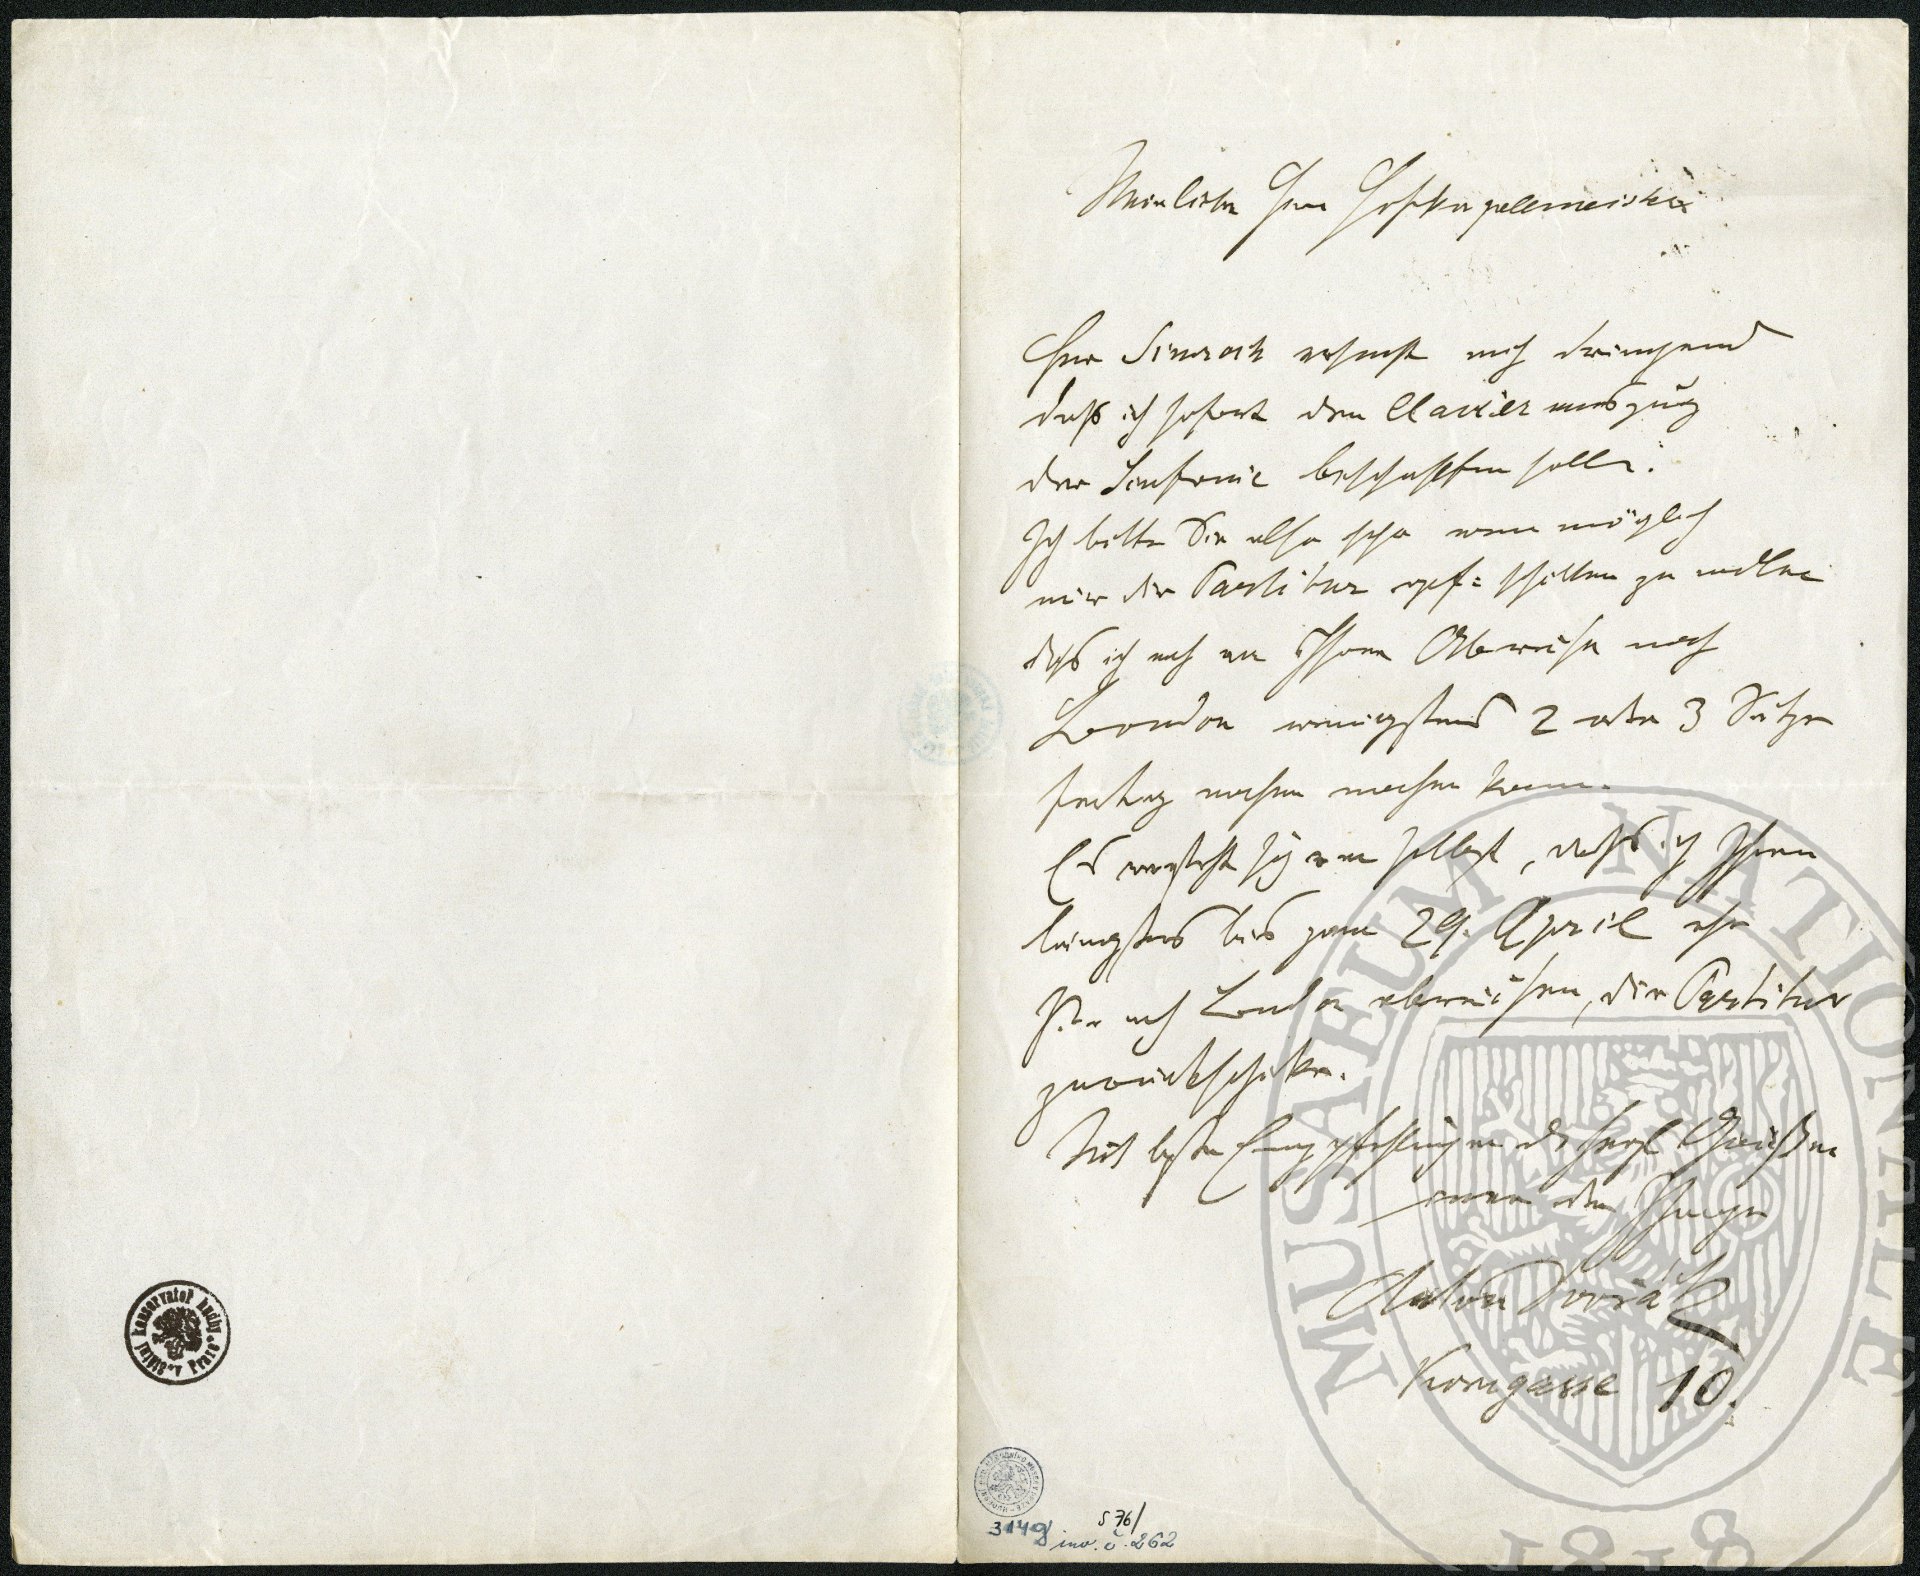 Mein lieber Herr Hofkapellmeister
Herr Simrock ersucht mich dringend
daß ich sofort den Clavierauszug
der Sinfonie beschaffen solle.
Ich bitte Sie also sehr wenn möglich
mir die Partitur schicken zu wollen
daß ich noch vor Ihrer Abreise nach
London wenigstens 2 oder 3 Sätze
fertig machen kann.
Es versteht sich von selbst, daß ich Ihnen
längstens bis zum 29. April ehe
Sie nach London abreisen, die Partitur
zurückschicke.
Mit besten Empfehlungen Grüßen
immer der Ihrige
Anton Dvořák
Korngasse 10.
Státní konservatoř hudby v Praze
3149
S 76/
inv. č. 262
MUSAEUM NATIONALE
1818